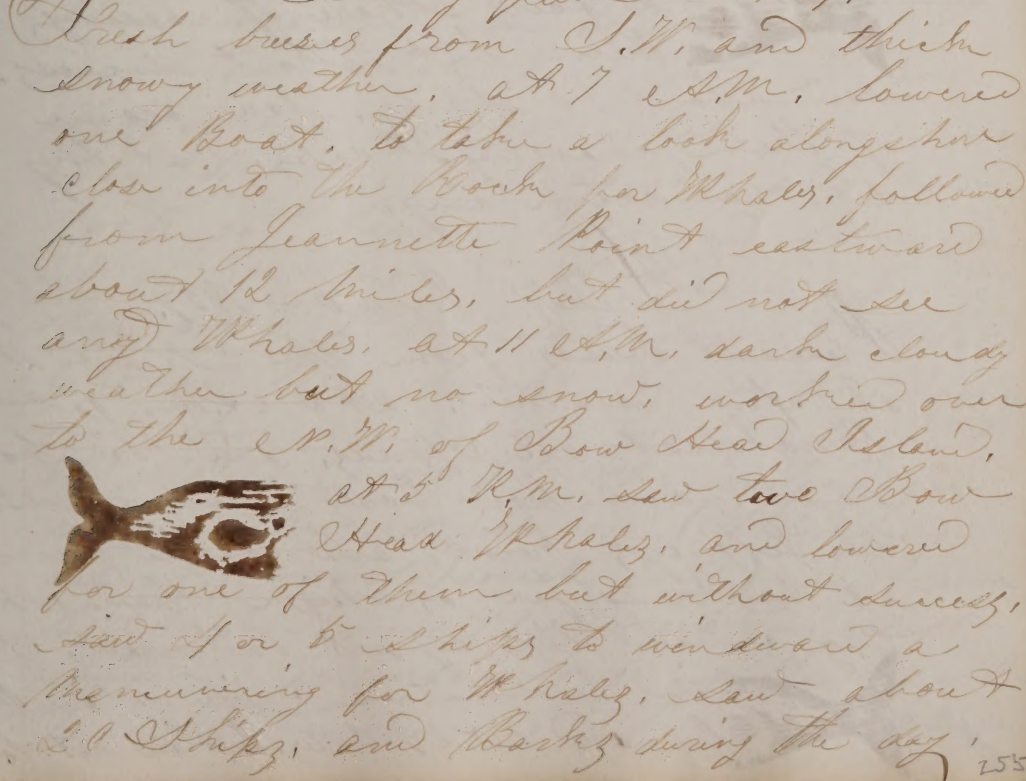 Fresh breezes from S.W. and thick
snowy weather. at 7 A.M. lowered
one Boat. to take a look alongshore
close into the Rocks for Whales, followed
from Jeannette Point eastward
about 12 Miles, but did not see
any Whales. at 11 A.M. dark cloudy
weather but no snow, worked over
to the N.W. of Bow Head Island.
at 5 P.M. saw two Bow
Head Whales, and lowered
for one of them but without success,
saw 4 or 5 ships to windward a
maneuvering for Whales, saw about
20 Ships, and Barks during the day.
255